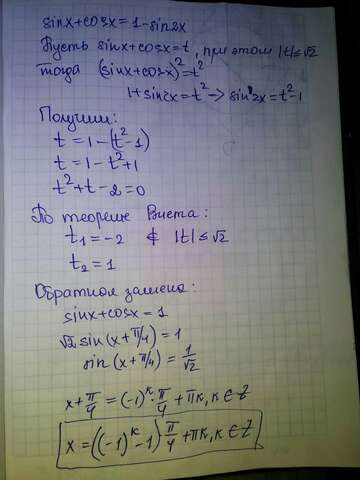 sinx+cosx=1-sin2x
Пусть sinx+cosx=t, при этом |t|≤√2
тогда (sinx+cosx)²=t²
1+sin2x=t² → sin2x=t²-1
Получим:
t=1-(t²-1)
t=1-t²+1
t²+t-2=0
По теореме Виета:
t₁=-2 ∉ |t|≤√2
t₂=1
Обратная замена:
sinx+cosx=1
√2 sin(x+π/4)=1
sin(x+π/4)=1/√2
x+π/4=(-1)ᵏ·π/4+πk, k∈Z
x=((-1)ᵏ-1)π/4+πk, k∈Z